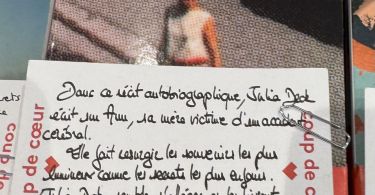 Dans ce récit autobiographique, Julia Deck
écrit sur Ann, sa mère victime d'un accident
cérébral.
Elle fait resurgir les souvenirs les plus
lumineux comme les secrets les plus enfouis.
Julia Deck
coup de cœur
coup de